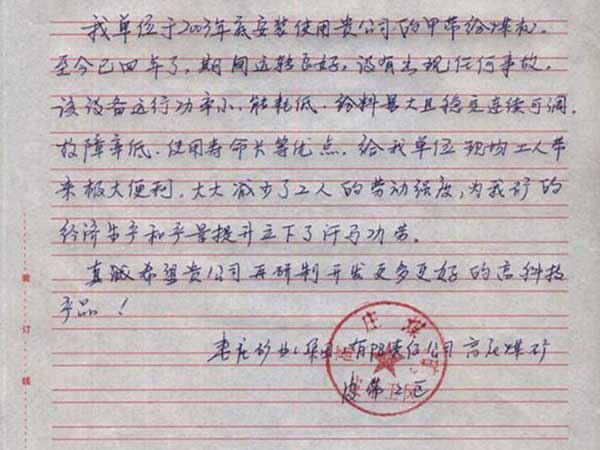 我单位于2003年底安装使用贵公司的甲带给煤机.
至今已四年了,期间运转良好,没有出现任何事故,
该设备运行功率小、能耗低、给料量大且稳定连续可调.
故障率低、使用寿命长等优点.给我单位现场工人带
来极大便利,大大减少了工人的劳动强度,为我矿的
经济生产和产量提升立下了汗马功劳。
真诚希望贵公司再研制开发更多更好的高科技
产品!
枣庄矿业(集团)有限责任公司高庄煤矿
皮带工区
装
订
线
庄煤